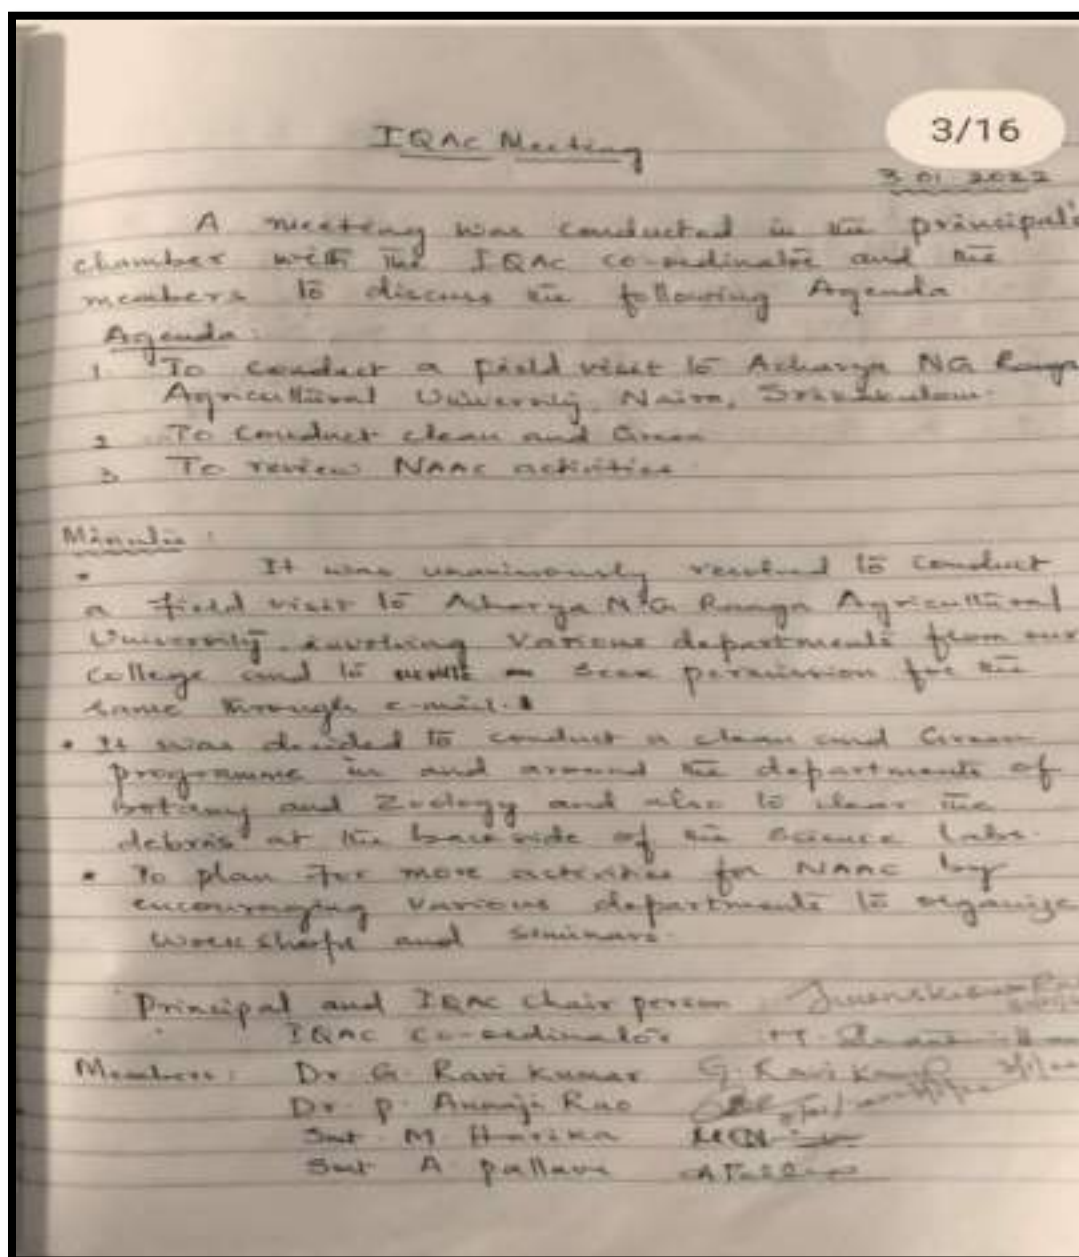 3/16
IQAC Meeting
3.01.2022
A meeting was conducted in the principal's
chamber with the IQAC co-ordinator and the
members to discuss the following Agenda
Agenda:
1 To conduct a field visit to Acharya NG Ranga
Agricultural University, Naira, Srikakulam.
2 To conduct clean and Green
3 To review NAAC activities.
Minutes:
• It was unanimously resolved to conduct
a field visit to Acharya N.G Ranga Agricultural
University involving various departments from our
college and to seek permission for the
same through e-mail.
• It was decided to conduct a clean and Green
programme in and around the departments of
Botany and Zoology and also to clear the
debris at the back side of the science labs.
• To plan for more activities for NAAC by
encouraging various departments to organize
workshops and seminars.
Principal and IQAC chair person
IQAC co-ordinator M.
Members: Dr G. Ravi Kumar G. Ravi Kumar
Dr. P. Annaji Rao
Smt. M Harika
Smt A. pallavi A Pallavi